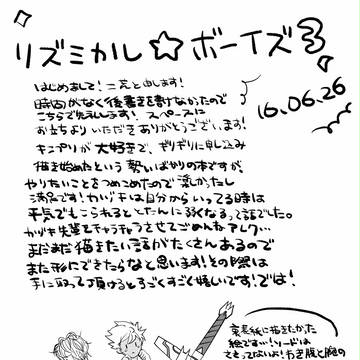 リズミカル☆ボーイズ3
16.06.26
はじめまして!二元と申します!
時間がなく後書きを書けなかたので
こちらで失礼します! スペースに
お立ちよりいただきありがとうございます!
キンプリが大好きで、ギリギリに申し込み
描き始めたという勢いばかりの本ですが、
やりたいことをつめこめたので楽しかったし
満足です!カヅキは自分からいってる時は
平気でもこられるととたんに弱くなるって話でした。
カヅキ先輩をチャラチャラさせてごめんねアレク…
まだまだ描きたい話がたくさんあるので
また形にできたらなと思います!その際は
手に取って頂けるとすごくすごく嬉しいです!では!
裏表紙に描きたかった
絵です…!ソードは